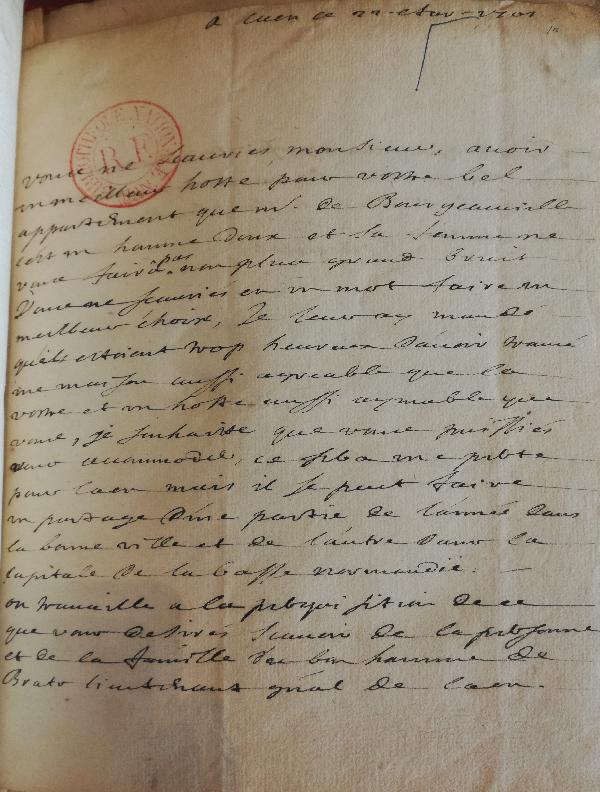 A Caen ce 22 
BIBLIOTHEQUE NATIONALE
R.F.
vous ne scauriés, monsieur, avoir
un meilleur hoste pour vostre bel
appartement que mr. de Bourgeauville
c'est un homme doux et sa femme ne
vous faira pas non plus grand bruit
Vous ne scauriés en un mot faire un
meilleur choix, Je leur ay mandé
qu'ils estoient trop heureux d'avoir trouvé
une maison aussi agreable que la
vostre et un hoste aussi aymable que
vous, je souhaitte que vous puissiés
vous accommoder, ce sera une perte
pour Caen mais il se peut faire
un partage d'une partie de l'année dans
la bonne ville et de l'autre dans la
capitale de la basse normandie.
on travaille a la perquisition de ce
que vous desirés scavoir de la personne
et de la famille du bon homme de
Bratz lieutenant gñal de Caen.